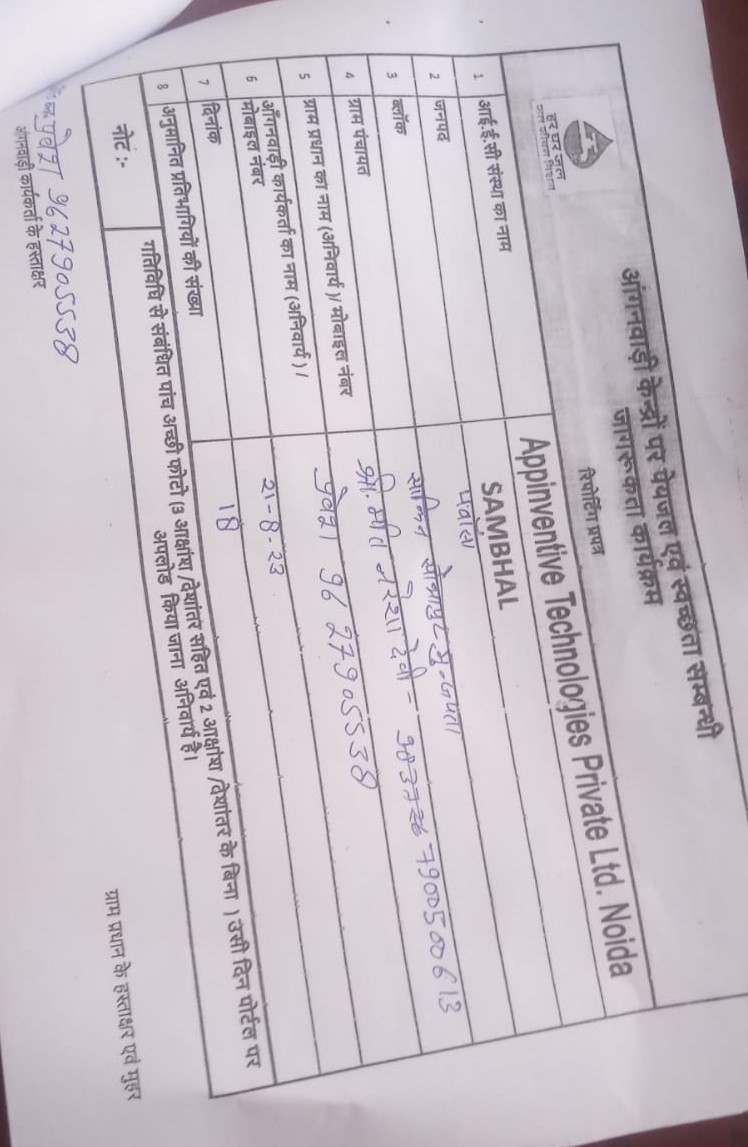 आंगनवाड़ी केन्द्रों पर पेयजल एवं स्वच्छता सम्बन्धी
जागरूकता कार्यक्रम
हर घर जल
रिपोर्टिंग प्रपत्र
1 आई.ई.सी संस्था का नाम Appinventive Technologies Private Ltd. Noida
2 जनपद SAMBHAL
3 ब्लॉक पवांसा
4 ग्राम पंचायत
5 ग्राम प्रधान का नाम (अनिवार्य)/ मोबाइल नंबर श्री. मति नरेशा देवी = 7900500613
6 आँगनवाड़ी कार्यकर्ता का नाम (अनिवार्य)/
मोबाइल नंबर 9627905538
7 दिनांक 21-8-23
8 अनुमानित प्रतिभागियों की संख्या 18
नोट :- गतिविधि से संबंधित पांच अच्छी फोटो (3 आक्षांश /देशांतर सहित एवं 2 आक्षांश /देशांतर के बिना ) उसी दिन पोर्टल पर
अपलोड किया जाना अनिवार्य है।
9627905538
आंगनवाड़ी कार्यकर्ता के हस्ताक्षर
ग्राम प्रधान के हस्ताक्षर एवं मुहर